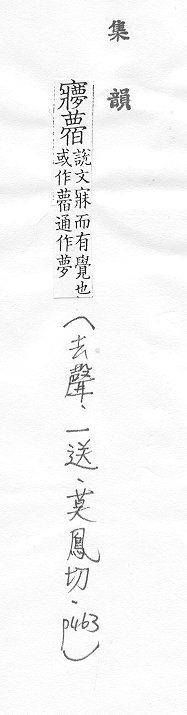 集韻
㝱𦴋
說文寐而有覺也
或作𦴋通作夢
(去聲、一送、莫鳳切、p463)